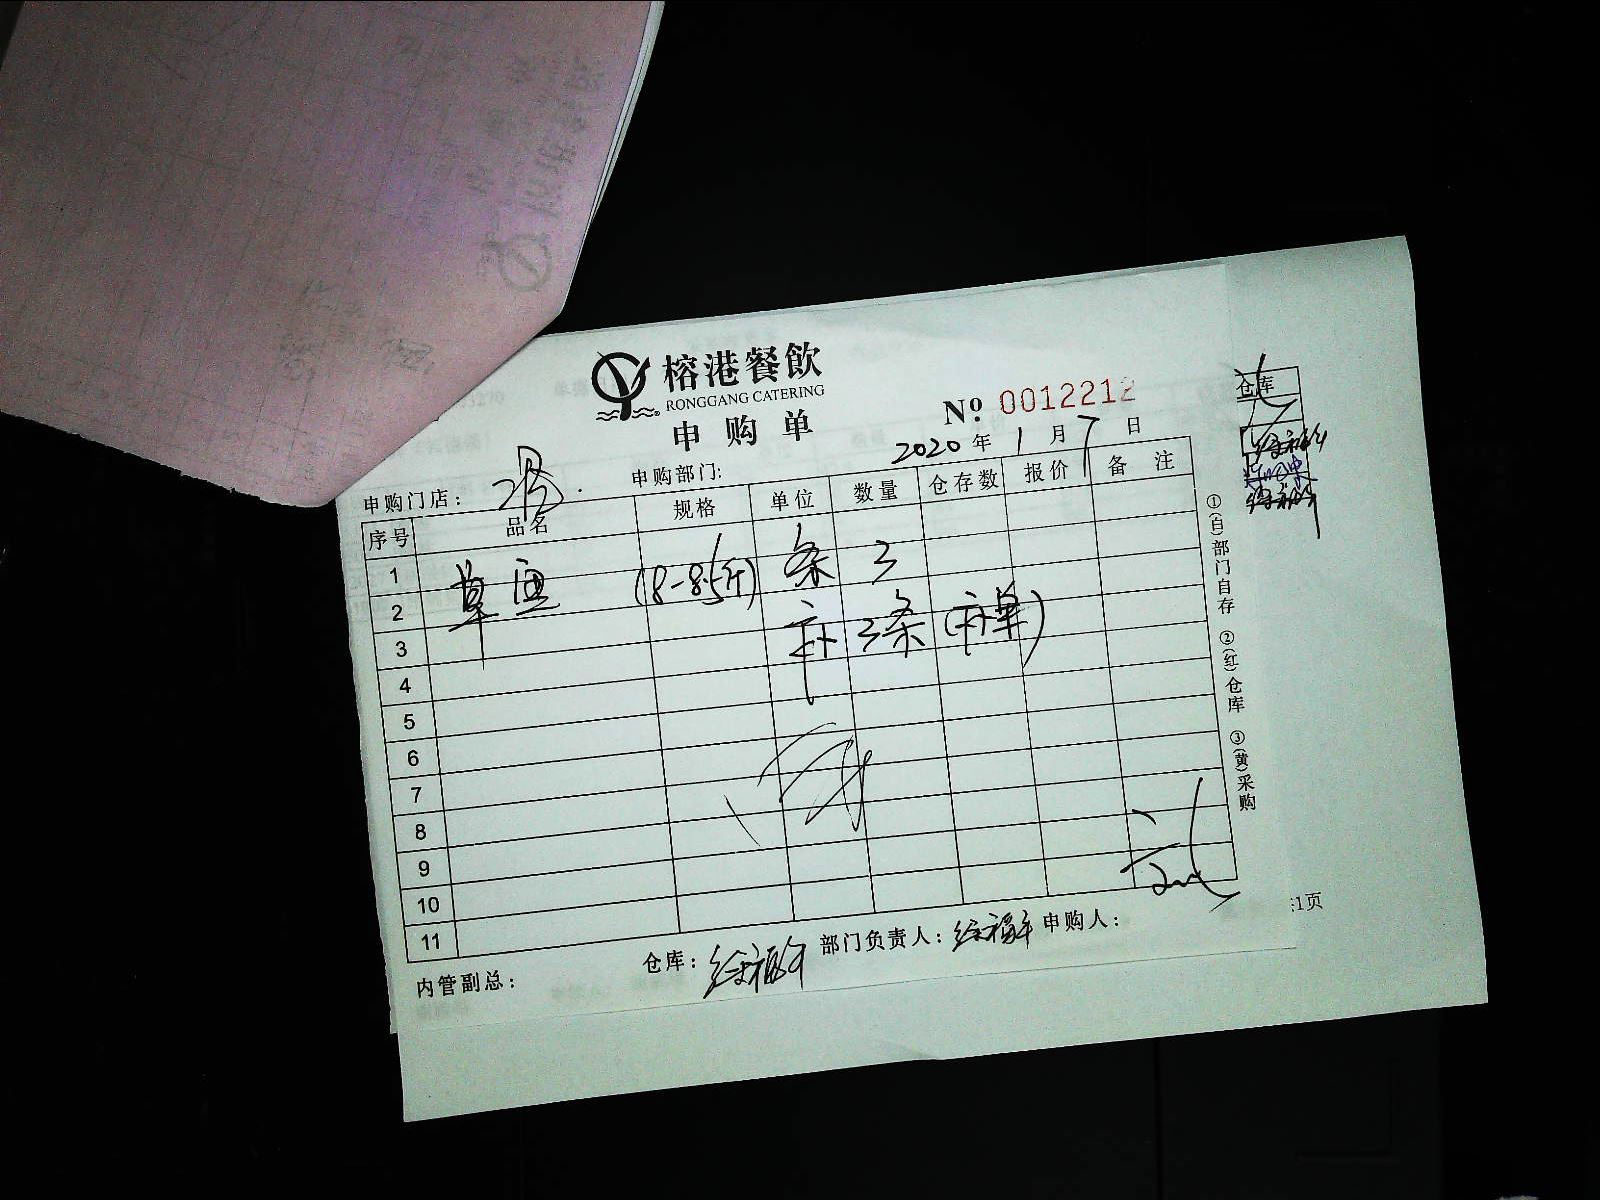 榕港餐飲
RONGGANG CATERING
申购单
№ 0012212
2020年1月7日
申购门店：汤. 申购部门:
序号 品名 规格 单位 数量 仓存数 报价 备注
1 草鱼 (8-8.5斤) 条 3
2 补3条(补单)
3
4
5
6
7
8
9
10
11
内管副总： 仓库： 部门负责人： 申购人：
①(白)部门自存 ②(红)仓库 ③(黄)采购
仓库
1页